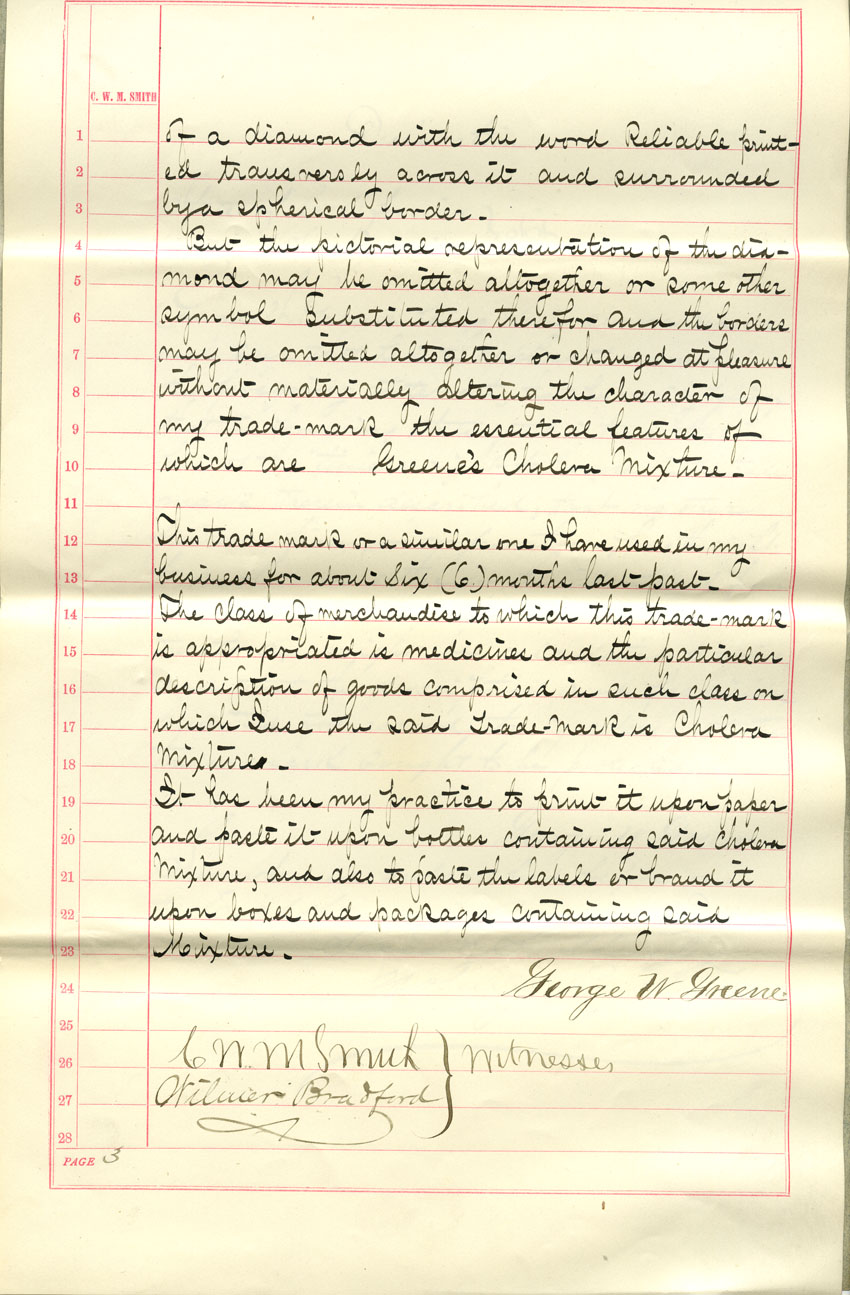 C. W. M. SMITH
1 of a diamond with the word Reliable print-
2 ed transversly across it and surrounded
3 by a spherical border.
4 But the pictorial representation of the dia-
5 mond may be omitted altogether or some other
6 symbol Substituted therefor and the borders
7 may be omitted altogether or changed at pleasure
8 without materially altering the character of
9 my trade-mark the essential features of
10 which are Greene's Cholera Mixture.
11
12 This trade mark or a similar one I have used in my
13 business for about Six (6) months last past.
14 The class of merchandise to which this trade-mark
15 is appropriated is medicines and the particular
16 description of goods comprised in such class on
17 which I use the said Trade-Mark is Cholera
18 Mixture. -
19 It has been my practice to print it upon paper
20 and paste it upon bottles containing said Cholera
21 Mixture, and also to paste the labels or brand it
22 upon boxes and packages containing said
23 Mixture. -
24 George W. Greene.
25
26 C W. M Smith } Witnesses
27 Wilmer Bradford
28
PAGE 3